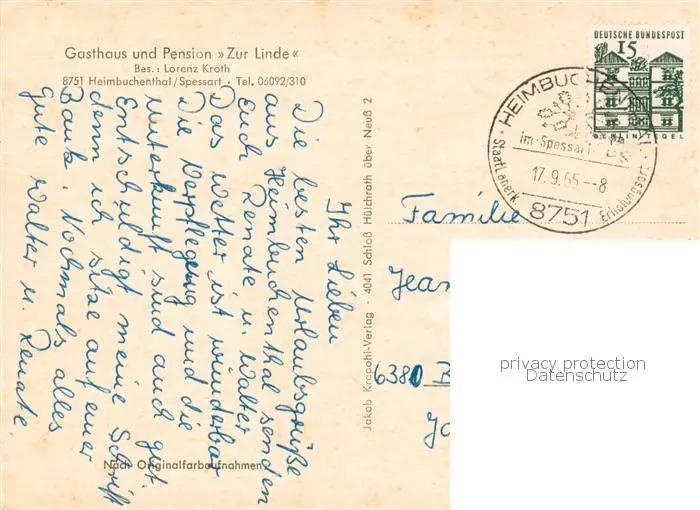 Gasthaus und Pension »Zur Linde«
Bes.: Lorenz Kroth
8751 Heimbuchenthal/Spessart · Tel. 06092/310
Ihr Lieben
Die besten Urlaubsgrüße
aus Heimbuchenthal senden
Euch Renate u. Walter
Das Wetter ist wunderbar
Die Verpflegung und die
Unterkunft sind auch gut.
Entschuldigt meine Schrift
denn ich sitze auf einer
Bank. Nochmals alles
gute Walter u. Renate.
Nach Originalfarbaufnahmen
Jakob Krapohl-Verlag · 4041 Schloß Hülchrath über Neuß 2
DEUTSCHE BUNDESPOST
15
BERLIN TEGEL
HEIMBUCHENTHAL
im · Spessart
17.9.65 – 8
Staatl.anerk. Erholungsort
8751
Familie
Jean
6380 B
privacy protection
Datenschutz